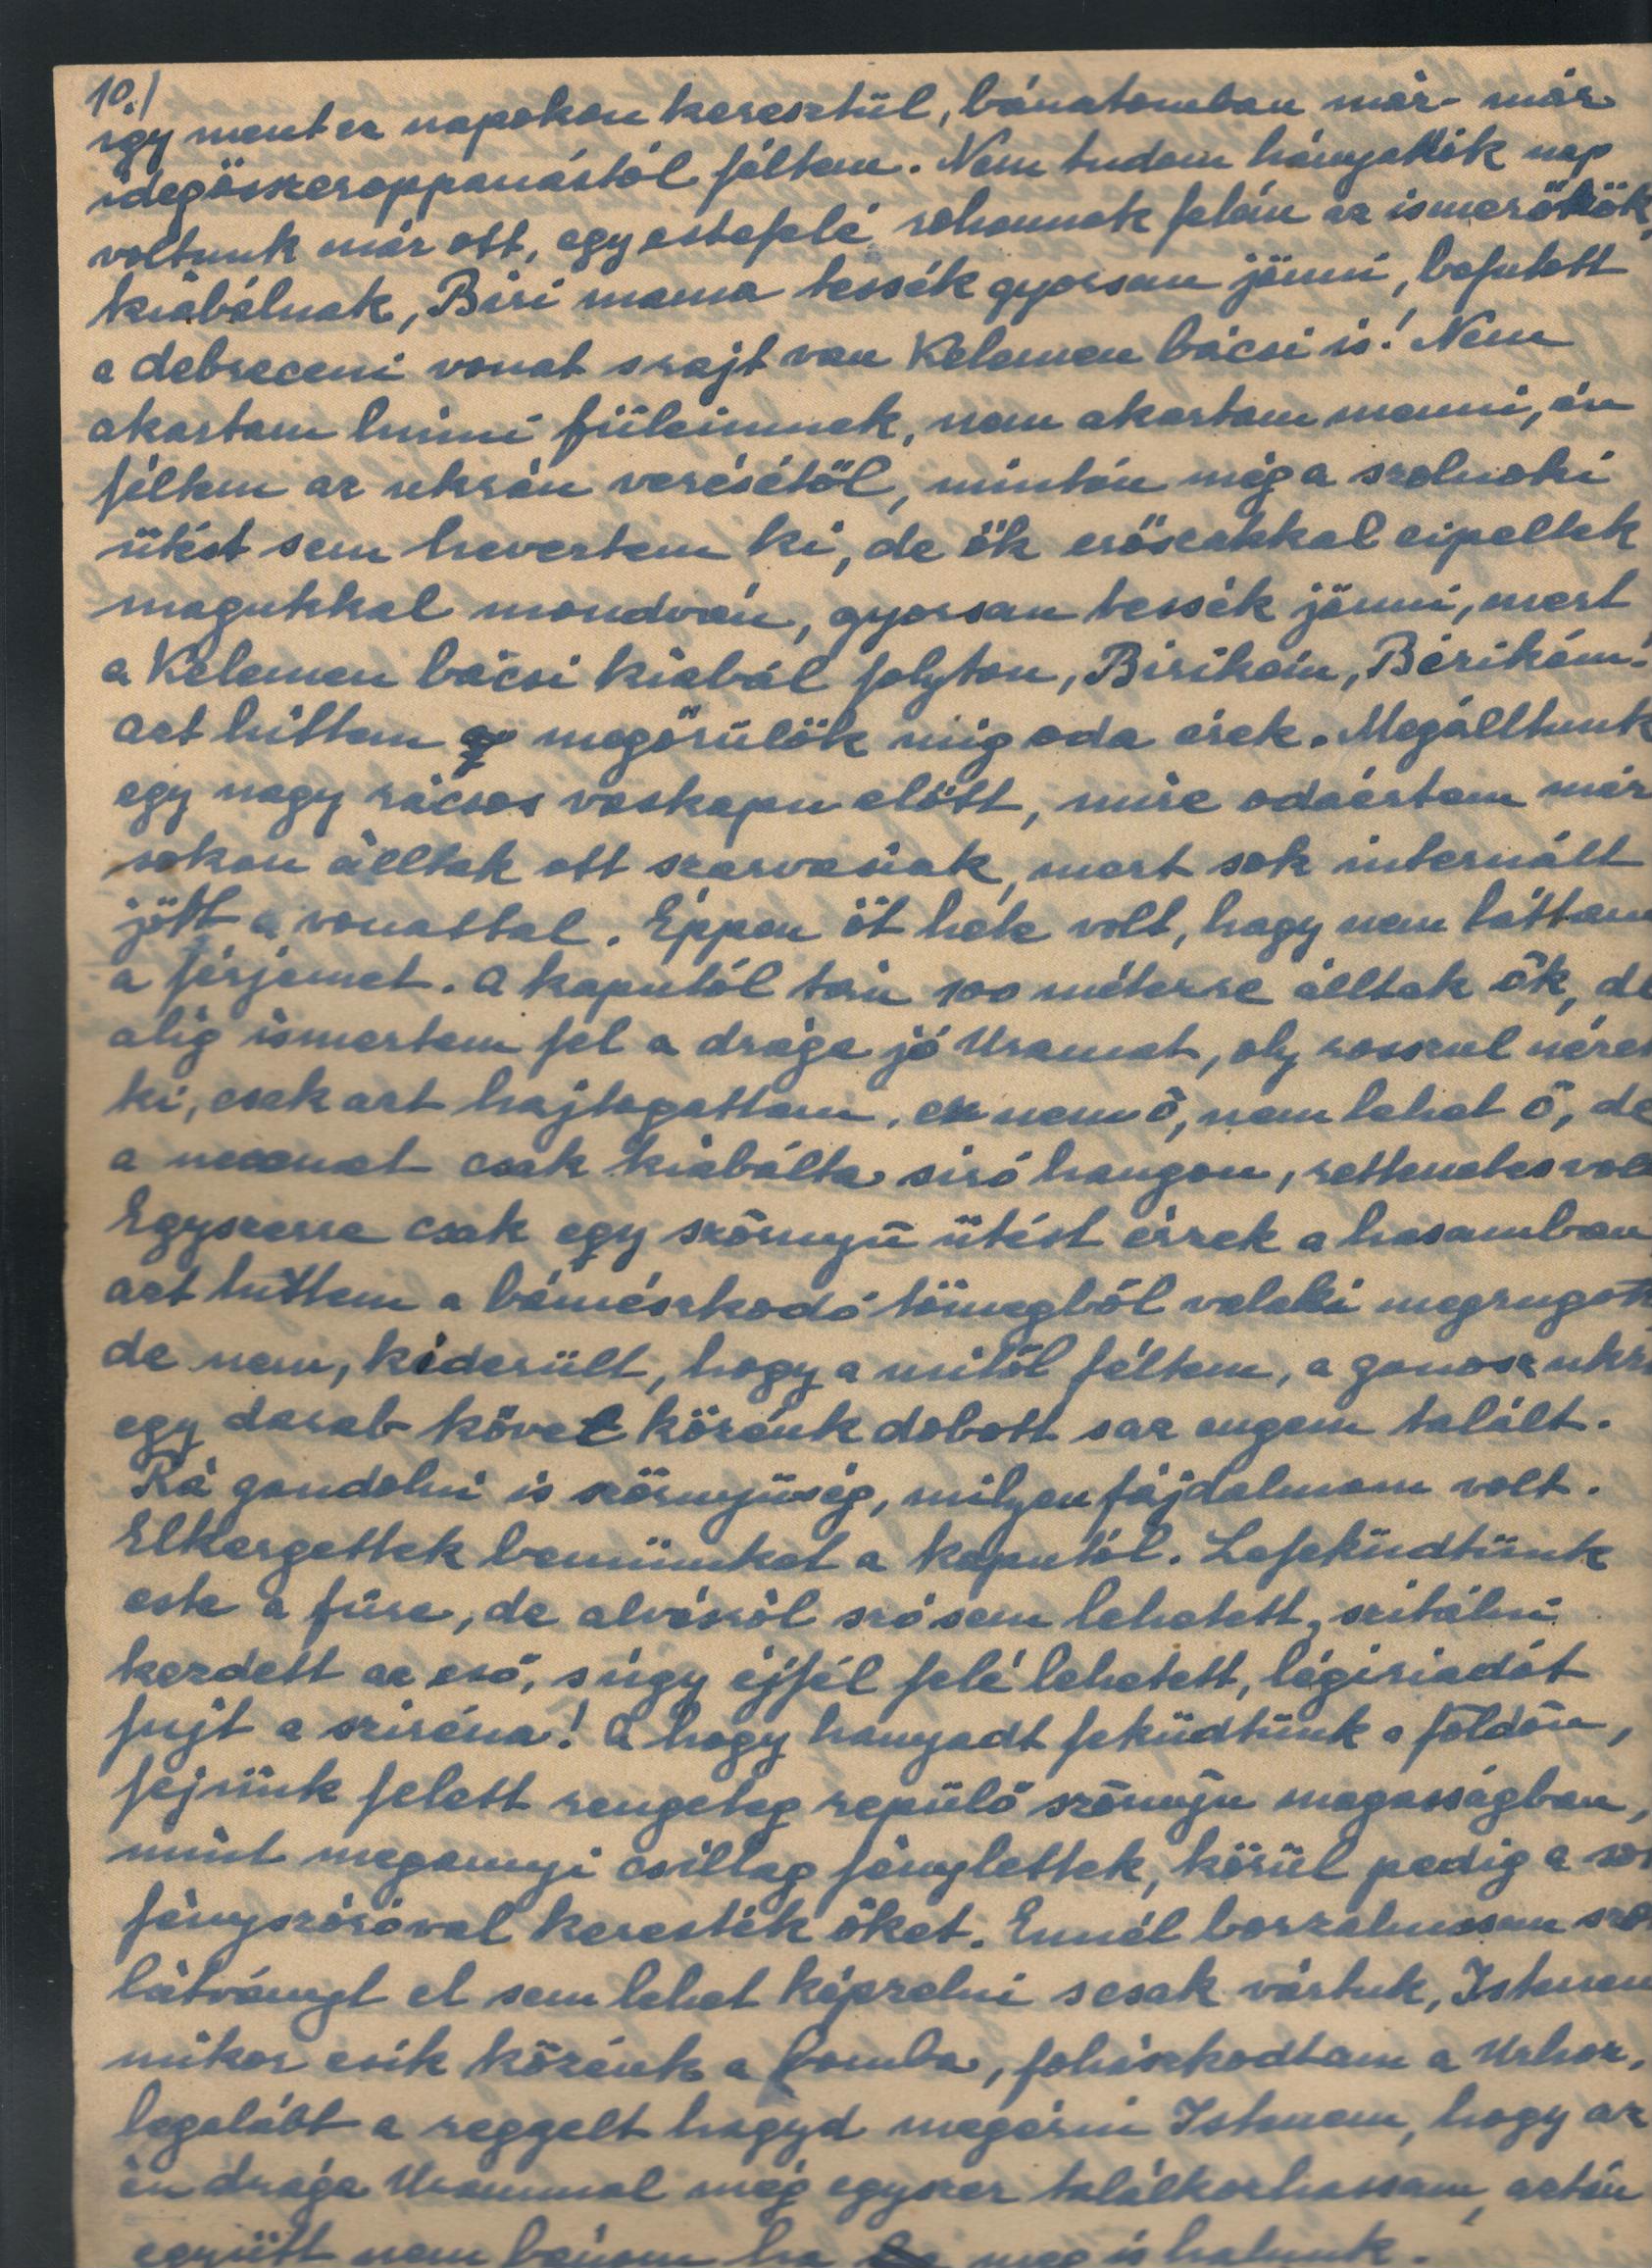 10./
így ment ez napokon keresztül, bánatomban már-már
idegösszeroppanástól féltem. Nem tudom hányadik nap
voltunk már ott, egy estefelé rohannak felém az ismerősök,
kiabálnak, Biri mama tessék gyorsan jönni, befutott
a debreceni vonat s rajt van Kelemen bácsi is! Nem
akartam hinni füleimnek, nem akartam menni, én
féltem az ukrán verésétől, mintán még a szolnoki
ütést sem hevertem ki, de ők erőszakkal cipeltek
magukkal mondván, gyorsan tessék jönni, mert
a Kelemen bácsi kiabál folyton, Birikém, Birikém.
azt hittem megőrülök míg oda érek. Megálltunk
egy nagy rácsos vaskapu előtt, mire odaértem már
sokan álltak ott szarvasiak, mert sok internált
jött a vonattal. Éppen öt hete volt, hogy nem láttam
a férjemet. A kaputól tán 100 méterre álltak ők, de
alig ismertem fel a drága jó Uramat, oly rosszul nézet
ki, csak azt hajtogattam, ez nem ő, nem lehet ő, de
a nevemet csak kiabálta siró hangon, rettenetes vol
Egyszerre csak egy szörnyű ütést érzek a hasamban
azt hittem a bámészkodó tömegből valaki megrugott
de nem, kiderült, hogy a mitől féltem, a gonosz ukr
egy darab követ közénk dobott s az engem talált.
Rá gondolni is szörnyűség, milyen fájdalmam volt.
Elkergettek bennünket a kaputól. Lefeküdtünk
este a fűre, de alvásról szó sem lehetett, szitálni
kezdett az eső, s úgy éjfél felé lehetett, légiriadót
fujt a sziréna! A hogy hanyadt feküdtünk a földön,
fejünk felett rengeteg repülő szörnyű magasságban,
mint megannyi csillag fénylettek, körül pedig a
fényszóróval keresték őket. Ennél borzalmasan
látványt el sem lehet képzelni s csak vártuk, Istenem
mikor esik közénk a bomba, fohászkodtam a Urhoz,
legalább a reggelt hagyd megérni Istenem, hogy az
én drága Urammal még egyszer találkozhassam, aztán
együtt nem bánom ha meg is halunk.